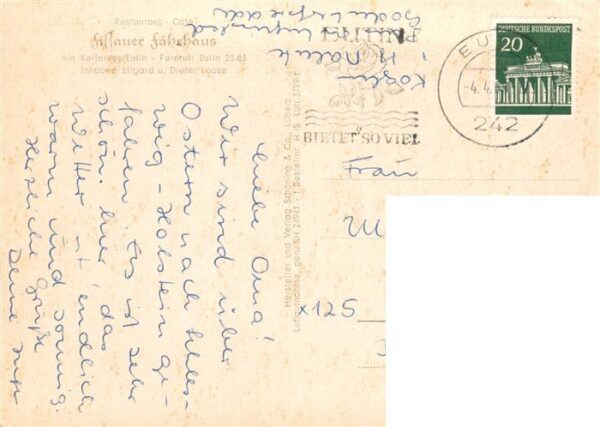 Restaurant - Café
Fissauer Fährhaus
Am Kellersee/Eutin - Fernruf: Eutin 23 85
Inhaber: Effgard u. Dieter Loose
Liebe Oma!
Wir sind über
Ostern nach Schles-
wig-Holstein ge-
fahren. Es ist sehr
schön hier, das
Wetter ist endlich
warm und sonnig.
Herzliche Grüße
Deine
Hersteller und Verlag Schöning & Co., Lübeck
Luftaufnahme, gen. SH 24941 - 1 Bestell-Nr. H-S Luft 5799-1
BIETET SO VIEL
EUTIN
-4.4.
242
DEUTSCHE BUNDESPOST
20
Frau
M
x125